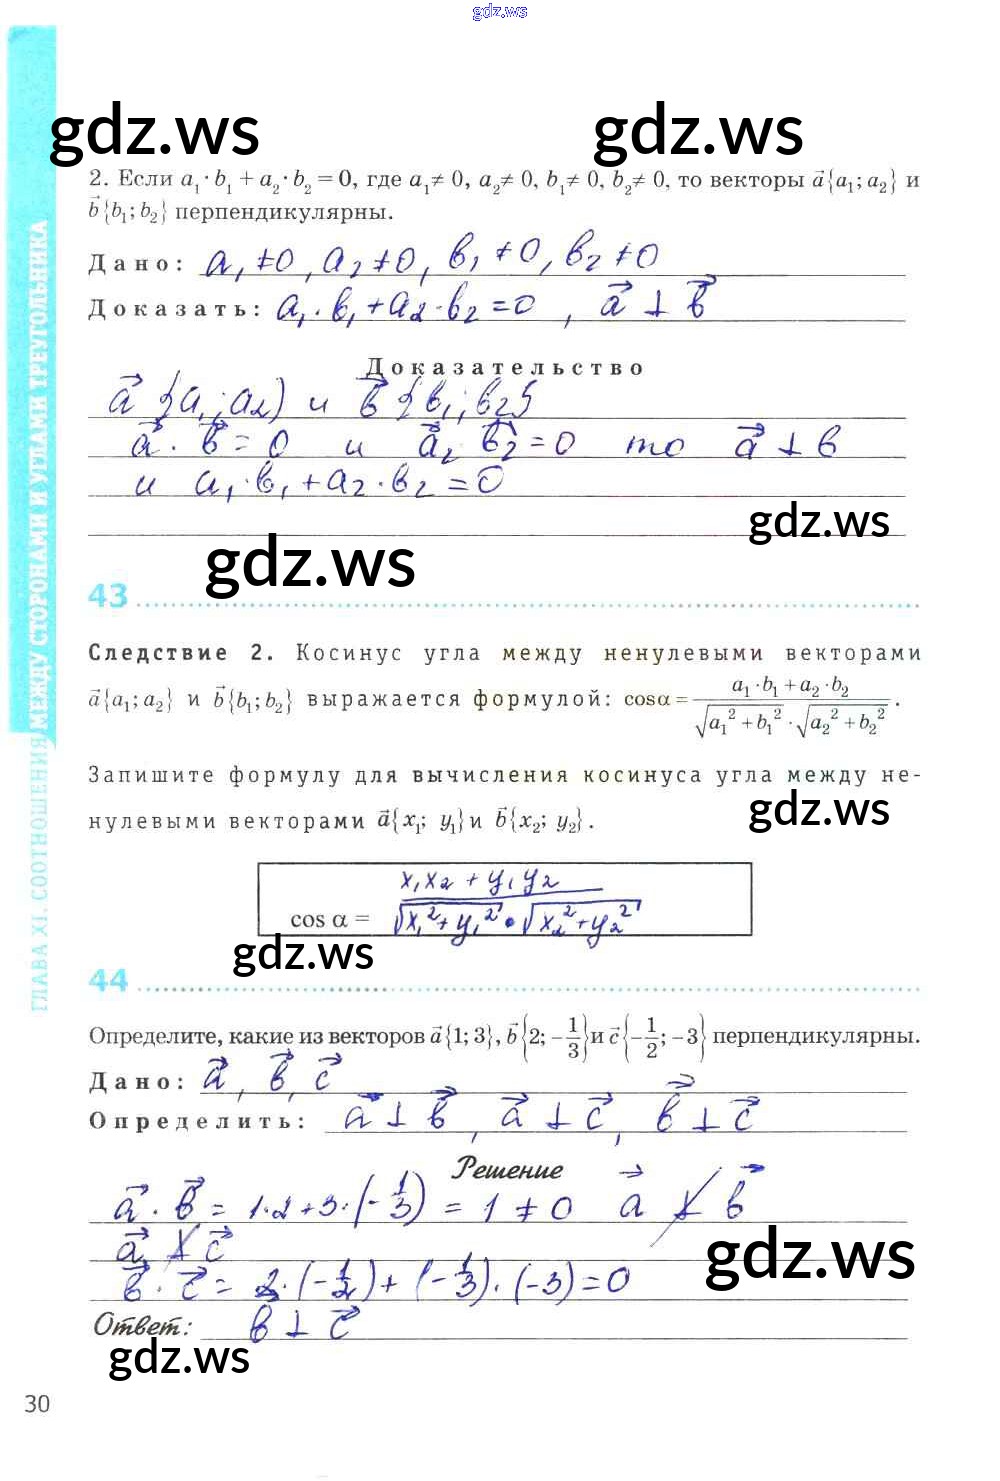 gdz.ws
gdz.ws gdz.ws
2. Если a₁· b₁ + a₂· b₂ = 0, где a₁≠ 0, a₂≠ 0, b₁≠ 0, b₂≠ 0, то векторы a⃗{a₁; a₂} и
b⃗{b₁; b₂} перпендикулярны.
Дано: a₁≠0, a₂≠0, b₁≠0, b₂≠0
Доказать: a₁·b₁+a₂·b₂=0, a⃗ ⊥ b⃗
Доказательство
a⃗ {a₁;a₂) и b⃗ {b₁;b₂}
a⃗ · b⃗ = 0 и a⃗₂ b⃗₂ = 0 то a⃗ ⊥ b
и a₁·b₁+a₂·b₂=0
gdz.ws
gdz.ws
43
Следствие 2. Косинус угла между ненулевыми векторами
a⃗{a₁; a₂} и b⃗{b₁; b₂} выражается формулой: cosα = (a₁·b₁ + a₂·b₂)/(√(a₁² + b₁²) · √(a₂² + b₂²)).
Запишите формулу для вычисления косинуса угла между не-
нулевыми векторами a⃗{x₁; y₁} и b⃗{x₂; y₂}.
gdz.ws
cos α = (x₁x₂ + y₁y₂)/(√(x₁²+y₁²) · √(x₂²+y₂²))
gdz.ws
44
Определите, какие из векторов a⃗{1; 3}, b⃗{2; −1/3} и c⃗{−1/2; −3} перпендикулярны.
Дано: a⃗, b⃗, c⃗
Определить: a⃗ ⊥ b⃗, a⃗ ⊥ c⃗, b⃗ ⊥ c⃗
Решение
a⃗ · b⃗ = 1·2+3·(−1/3) = 1 ≠ 0 a⃗ ⊥̸ b⃗
a⃗ ⊥̸ c⃗
b⃗ · c⃗ = 2·(−1/2)+(−1/3)·(−3)=0
gdz.ws
Ответ: b ⊥ c⃗
gdz.ws
30
ГЛАВА XI. СООТНОШЕНИЯ МЕЖДУ СТОРОНАМИ И УГЛАМИ ТРЕУГОЛЬНИКА